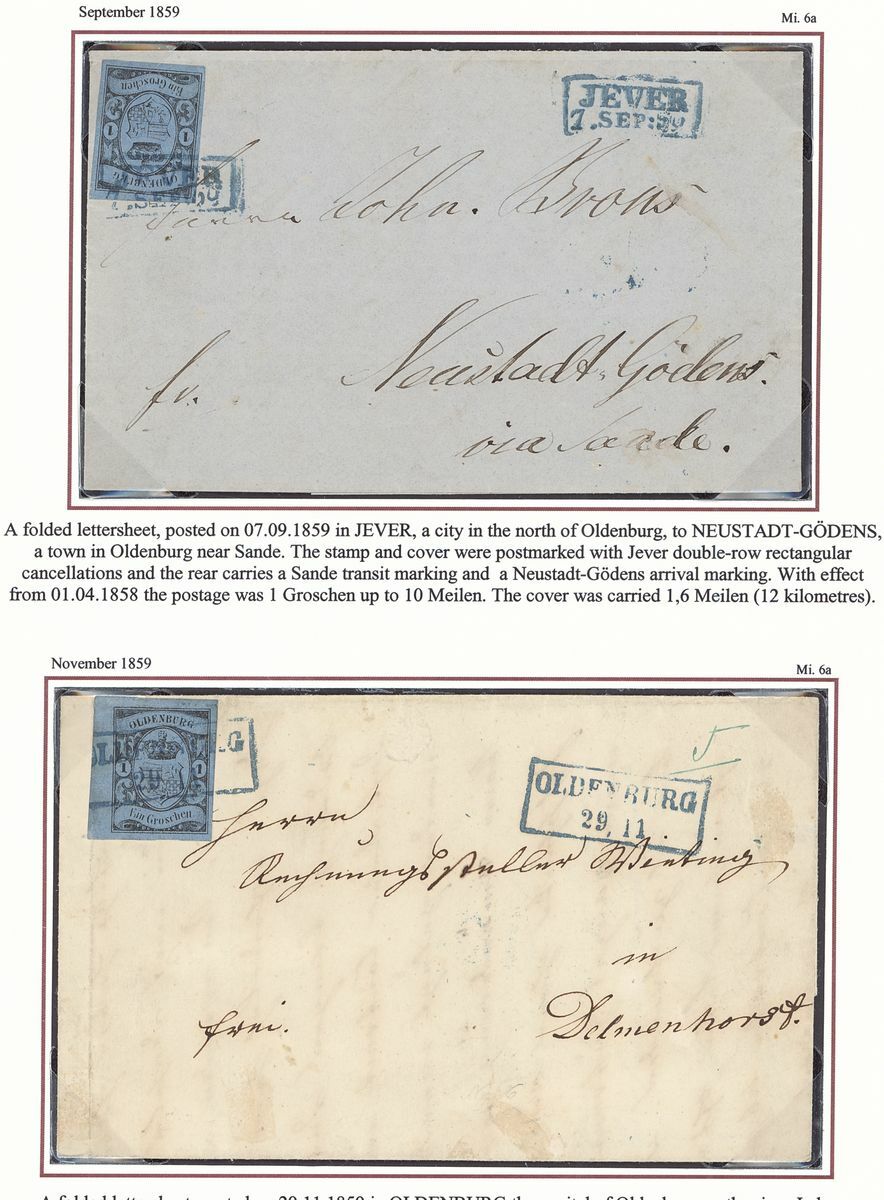 September 1859
Mi. 6a
Ein Groschen
1 1
OLDENBURG
JEVER
7. SEP: 59
Herrn John. Brons
fr. Neustadt-Gödens.
via Sande.
A folded lettersheet, posted on 07.09.1859 in JEVER, a city in the north of Oldenburg, to NEUSTADT-GÖDENS,
a town in Oldenburg near Sande. The stamp and cover were postmarked with Jever double-row rectangular
cancellations and the rear carries a Sande transit marking and a Neustadt-Gödens arrival marking. With effect
from 01.04.1858 the postage was 1 Groschen up to 10 Meilen. The cover was carried 1,6 Meilen (12 kilometres).
November 1859
Mi. 6a
OLDENBURG
1 1
Ein Groschen
OLDENBURG
29. 11
Herrn
Rechnungssteller Wieting
in
frei. Delmenhorst.